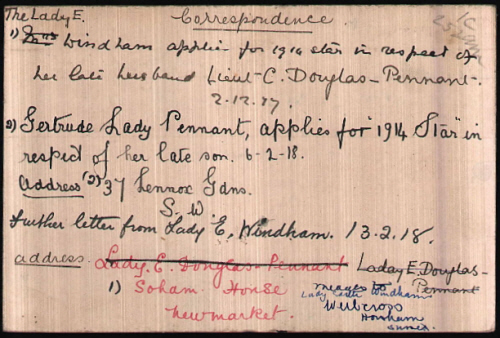 The Lady E. Correspondence
1) Mrs Windham applies for 1914 star in respect of
her late husband Lieut. C. Douglas-Pennant.
2.12.17.
2) Gertrude Lady Pennant, applies for "1914 Star" in
respect of her late son. 6-2-18.
Address (2) 37 Lennox Gdns.
S.W
Further letter from Lady E. Windham. 13.2.18.
address. Lady. E. Douglas-Pennant Laday E. Douglas-
Pennant
1) Soham House
Newmarket.
Lady Windham
Horsham
Sussex.